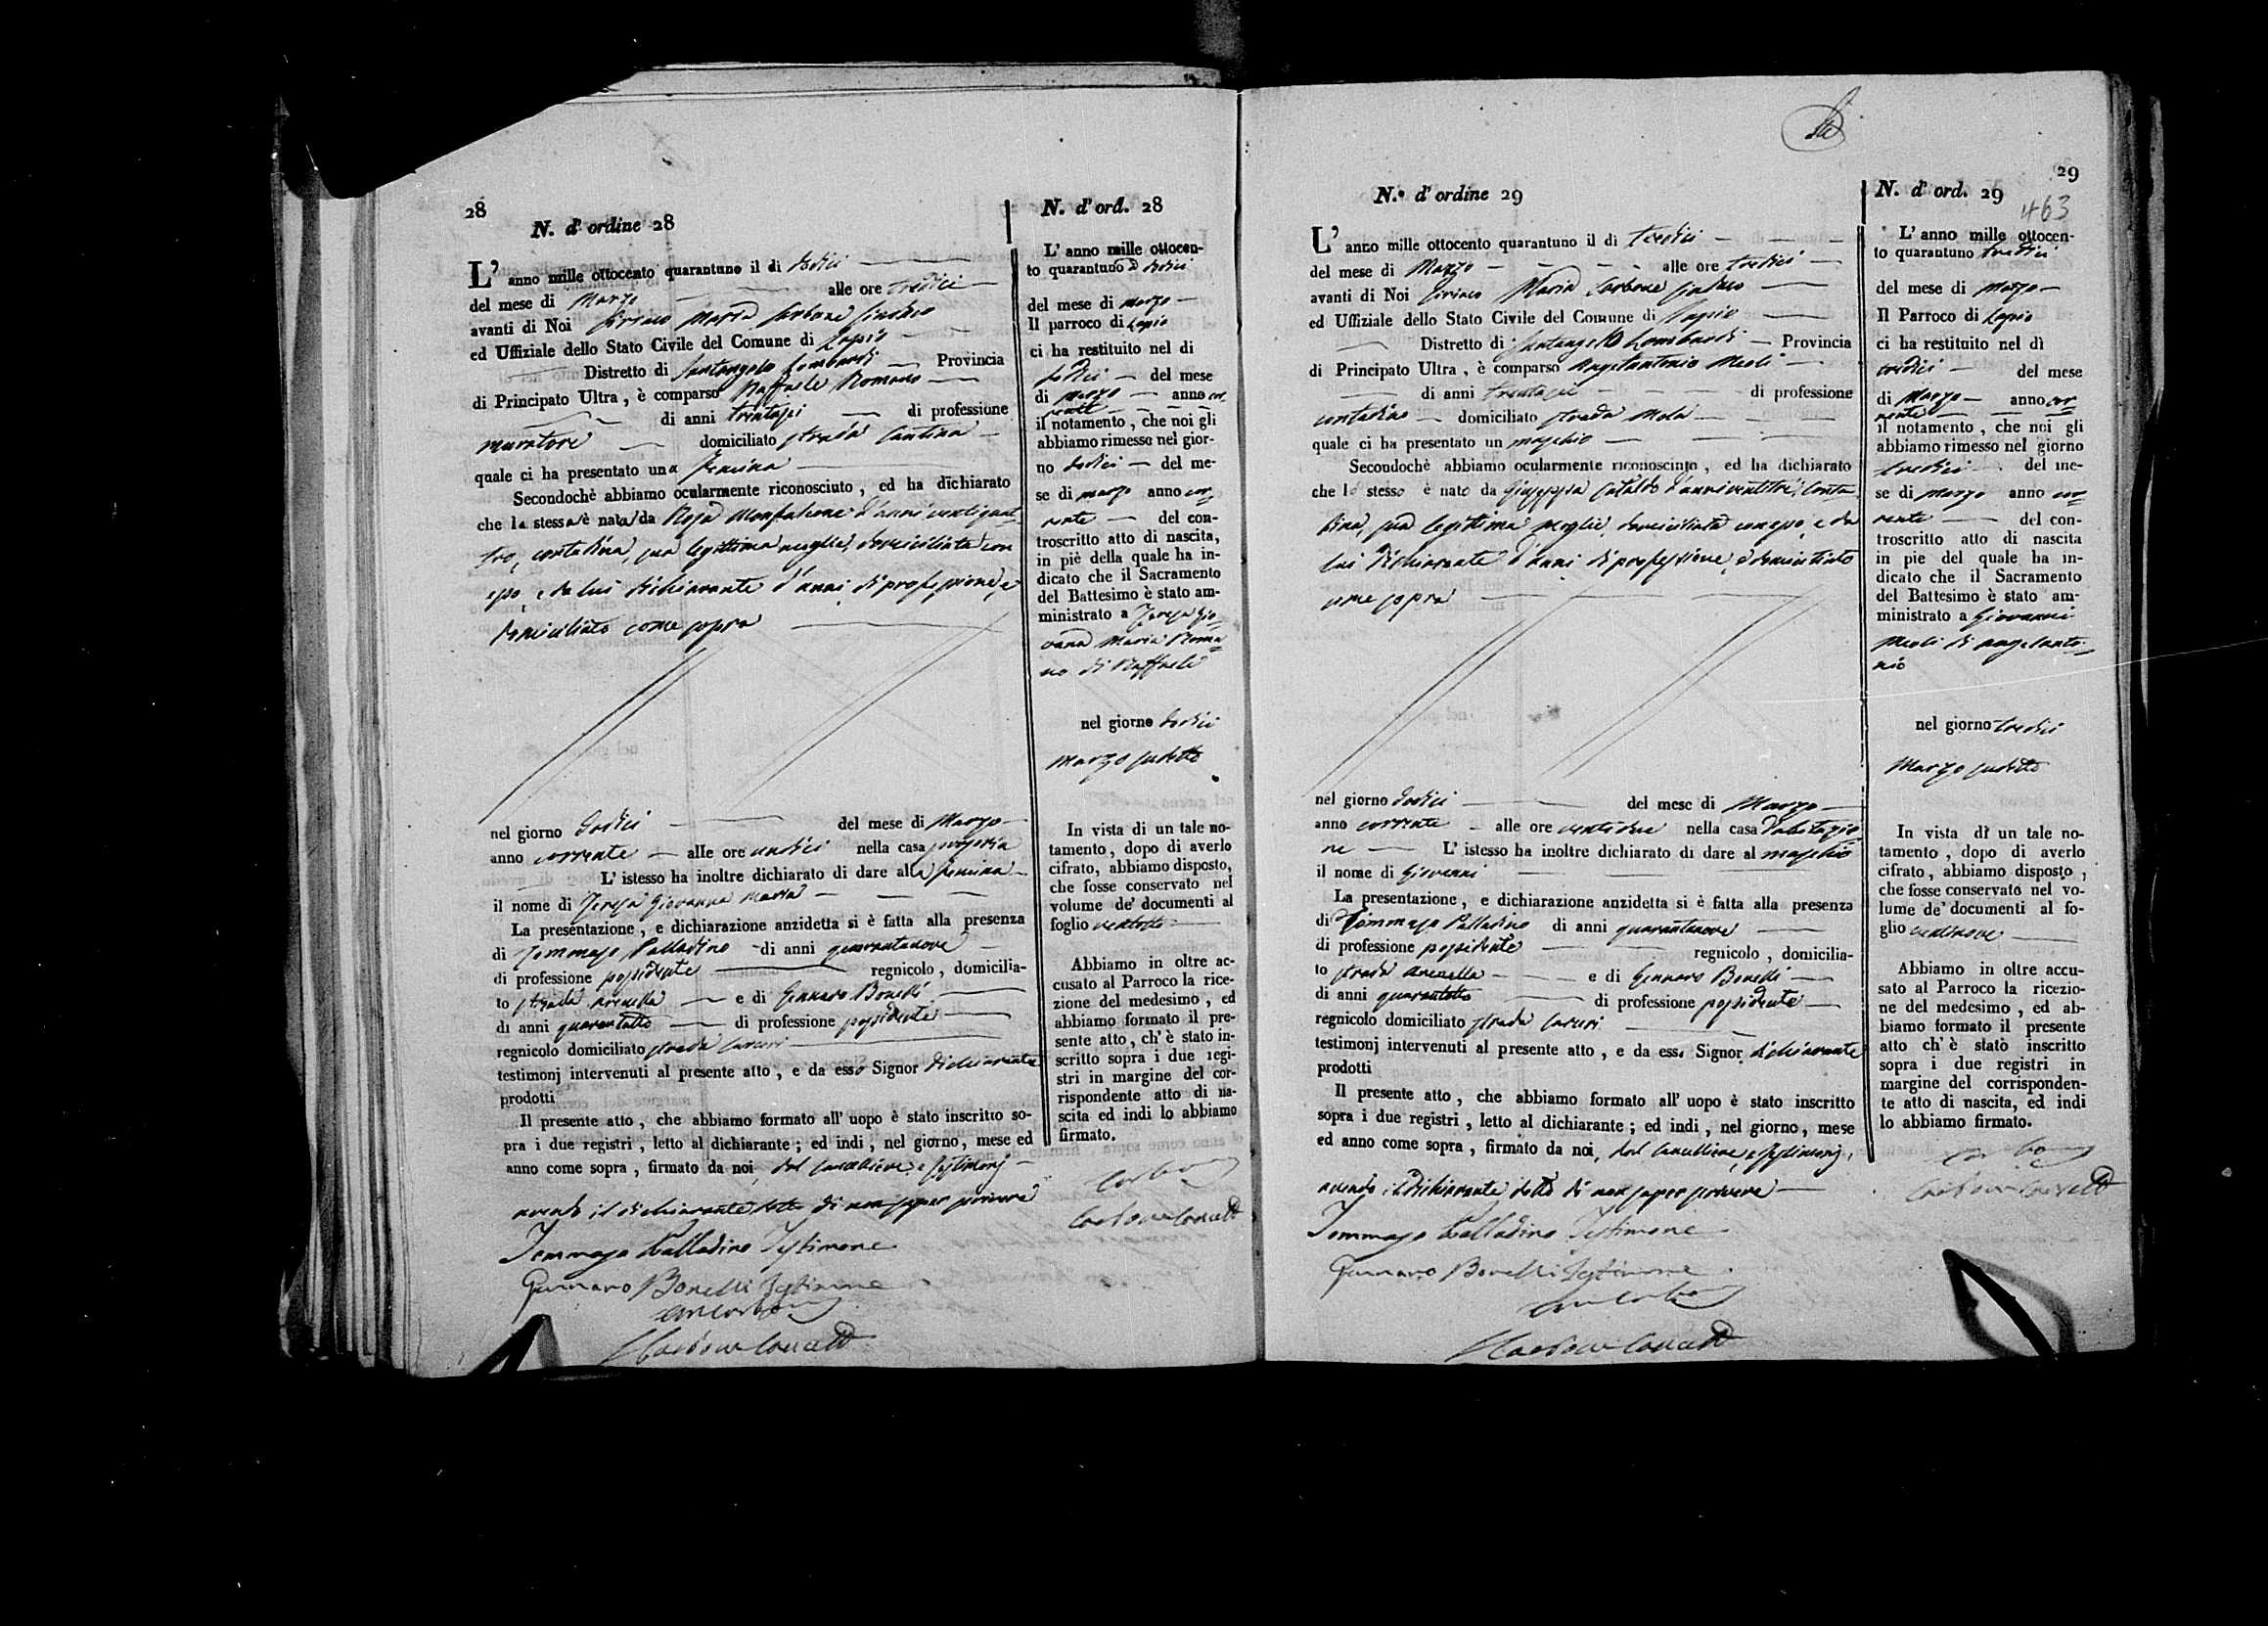 28
N. d' ordine 28
L' anno mille ottocento quarantuno il di dodici
del mese di Marzo alle ore tredici
avanti di Noi Ciriaco Maria Carbone Sindaco
ed Uffiziale dello Stato Civile del Comune di Lapio
Distretto di Santangelo Lombardi Provincia
di Principato Ultra, è comparso Raffaele Romano
di anni trentasei di professione
muratore domiciliato strada Cantina
quale ci ha presentato una femina
Secondochè abbiamo ocularmente riconosciuto, ed ha dichiarato
che la stessa è nata da Rosa Monfalcone d'anni ventiquat-
tro, contadina, sua legittima moglie, domiciliata con
esso, e da lui dichiarante d'anni di professione, e
domiciliato come sopra
nel giorno dodici del mese di Marzo
anno corrente alle ore undici nella casa propria
L' istesso ha inoltre dichiarato di dare alla femina
il nome di Teresa Giovanna Maria
La presentazione, e dichiarazione anzidetta si è fatta alla presenza
di Tommaso Palladino di anni quarantanove
di professione possidente regnicolo, domicilia-
to strada arenella e di Gennaro Bonelli
di anni quarantotto di professione possidente
regnicolo domiciliato strada Carceri
testimonj intervenuti al presente atto, e da esso Signor dichiarante
prodotti
Il presente atto, che abbiamo formato all' uopo è stato inscritto so-
pra i due registri, letto al dichiarante; ed indi, nel giorno, mese ed
anno come sopra, firmato da noi, dal Cancelliere, e testimonj
avendo il dichiarante detto di non saper scrivere
Tommaso Palladino Testimone
Gennaro Bonelli Testimone
N. d' ord. 28
L' anno mille ottocen-
to quarantuno dodici
del mese di marzo
Il parroco di Lapio
ci ha restituito nel di
dodici del mese
di marzo anno cor-
rente
il notamento, che noi gli
abbiamo rimesso nel gior-
no dodici del me-
se di marzo anno cor-
rente del con-
troscritto atto di nascita,
in piè della quale ha in-
dicato che il Sacramento
del Battesimo è stato am-
ministrato a Teresa Gio-
vanna Maria Roma-
no di Raffaele
nel giorno dodici
Marzo sudetto
In vista di un tale no-
tamento, dopo di averlo
cifrato, abbiamo disposto,
che fosse conservato nel
volume de' documenti al
foglio ventotto
Abbiamo in oltre ac-
cusato al Parroco la rice-
zione del medesimo, ed
abbiamo formato il pre-
sente atto, ch' è stato in-
scritto sopra i due regi-
stri in margine del cor-
rispondente atto di na-
scita ed indi lo abbiamo
firmato.
29
N.º d' ordine 29
L' anno mille ottocento quarantuno il di tredici
del mese di Marzo alle ore tredici
avanti di Noi Ciriaco Maria Carbone Sindaco
ed Uffiziale dello Stato Civile del Comune di Lapio
Distretto di Santangelo Lombardi Provincia
di Principato Ultra, è comparso Angelantonio Meoli
di anni trentasei di professione
contadino domiciliato strada Mola
quale ci ha presentato un maschio
Secondochè abbiamo ocularmente riconosciuto, ed ha dichiarato
che lo stesso è nato da Giuseppa Cataldo d'anni ventitrè, Conta-
dina, sua legittima moglie, domiciliata con esso, e da
lui dichiarante d'anni di professione, e domiciliato
come sopra
nel giorno dodici del mese di Marzo
anno corrente alle ore ventidue nella casa d'abitazio-
ne L' istesso ha inoltre dichiarato di dare al maschio
il nome di Giovanni
La presentazione, e dichiarazione anzidetta si è fatta alla presenza
di Tommaso Palladino di anni quarantanove
di professione possidente regnicolo, domicilia-
to strada arenella e di Gennaro Bonelli
di anni quarantotto di professione possidente
regnicolo domiciliato strada Carceri
testimonj intervenuti al presente atto, e da esso Signor dichiarante
prodotti
Il presente atto, che abbiamo formato all' uopo è stato inscritto
sopra i due registri, letto al dichiarante; ed indi, nel giorno, mese
ed anno come sopra, firmato da noi, dal Cancelliere, e testimonj,
avendo il dichiarante detto di non saper scrivere
Tommaso Palladino Testimone
Gennaro Bonelli Testimone
N. d' ord. 29
463
L' anno mille ottocen-
to quarantuno tredici
del mese di marzo
Il Parroco di Lapio
ci ha restituito nel dì
tredici del mese
di Marzo anno cor-
rente
il notamento, che noi gli
abbiamo rimesso nel giorno
tredici del me-
se di marzo anno cor-
rente del con-
troscritto atto di nascita
in pie del quale ha in-
dicato che il Sacramento
del Battesimo è stato am-
ministrato a Giovanni
Meoli di angelanto-
nio
nel giorno tredici
Marzo sudetto
In vista di un tale no-
tamento, dopo di averlo
cifrato, abbiamo disposto,
che fosse conservato nel vo-
lume de' documenti al fo-
glio ventinove
Abbiamo in oltre accu-
sato al Parroco la ricezio-
ne del medesimo, ed ab-
biamo formato il presente
atto ch' è stato inscritto
sopra i due registri in
margine del corrisponden-
te atto di nascita, ed indi
lo abbiamo firmato.